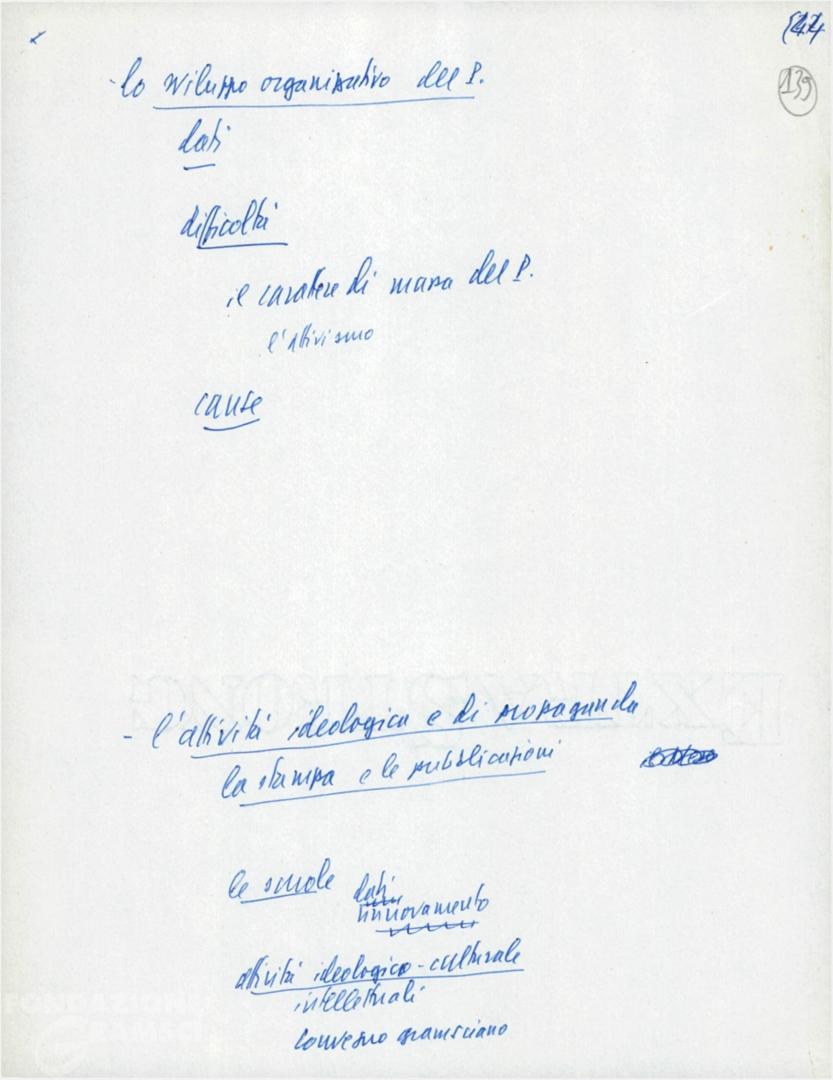 139
- lo sviluppo organizzativo del P.
dati
difficoltà
il carattere di massa del P.
l'attivismo
cause
- l'attività ideologica e di propaganda
la stampa e le pubblicazioni
le scuole dati
rinnovamento
attività ideologico-culturale
intellettuali
convegno gramsciano
FONDAZIONE
GRAMSCI